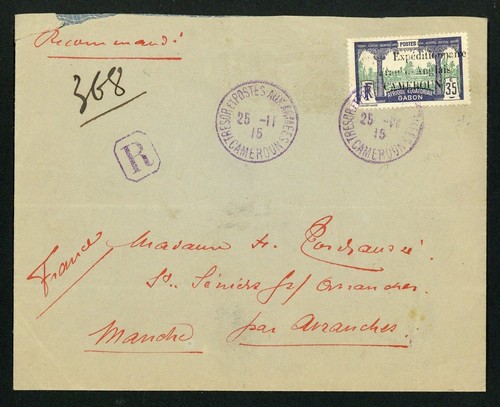 Recommandé
368
R
TRESOR ET POSTES AUX ARMEES
25 -11
15
CAMEROUN
POSTES
Expéditionnaire
Franco-Anglais
CAMEROUN
RF
35
AFRIQUE EQUATORIALE
GABON
TRESOR ET
25 -11
15
CAMEROUN
France
Madame de
St. Séniers
Manche par Avranches